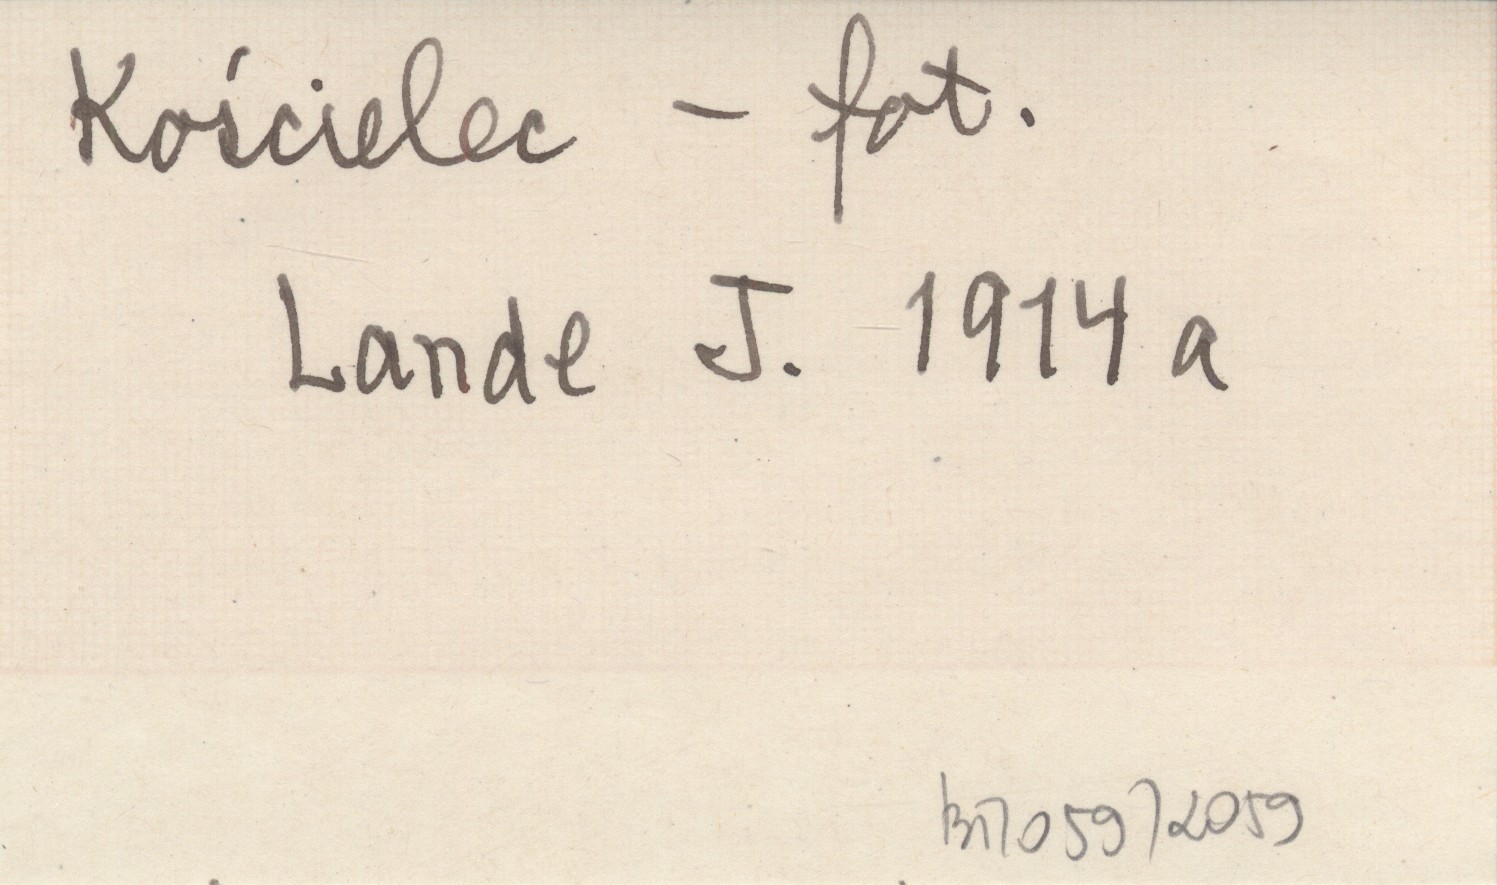 Kościelec - fot.
Lande J. 1914 a
059/2059